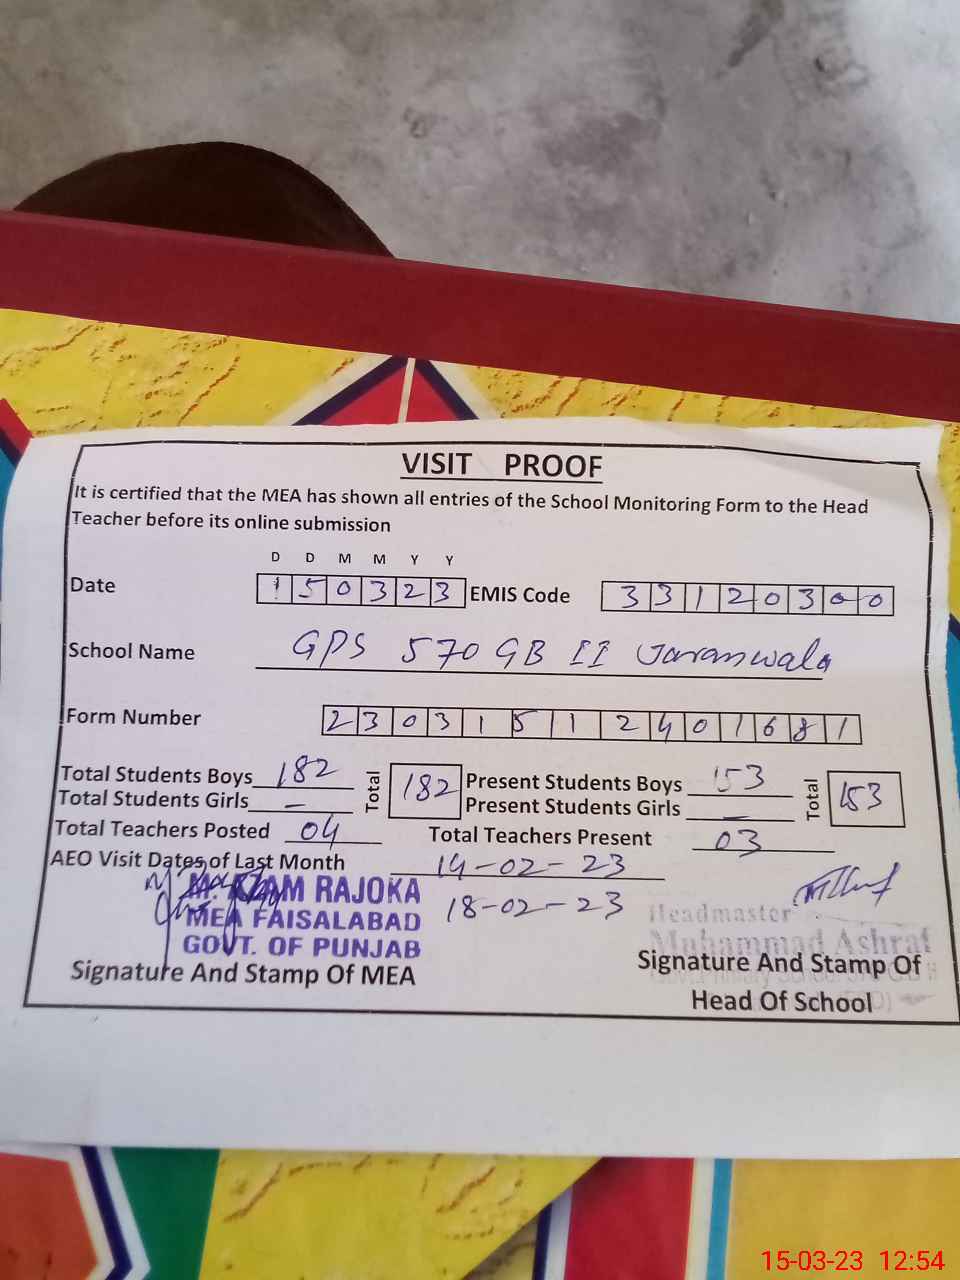 VISIT PROOF
It is certified that the MEA has shown all entries of the School Monitoring Form to the Head
Teacher before its online submission
D D M M Y Y
Date 150323 EMIS Code 33120300
School Name GPS 570 GB II Jaranwala
Form Number 230315112401681
Total Students Boys 182 Total 182 Present Students Boys 153 Total 153
Total Students Girls - Present Students Girls -
Total Teachers Posted 04 Total Teachers Present 03
AEO Visit Dates of Last Month 14-02-23
18-02-23
RAJOKA
MEA FAISALABAD
GOVT. OF PUNJAB
Signature And Stamp Of MEA
Headmaster
Muhammad Ashraf
Signature And Stamp Of
Head Of School
15-03-23 12:54